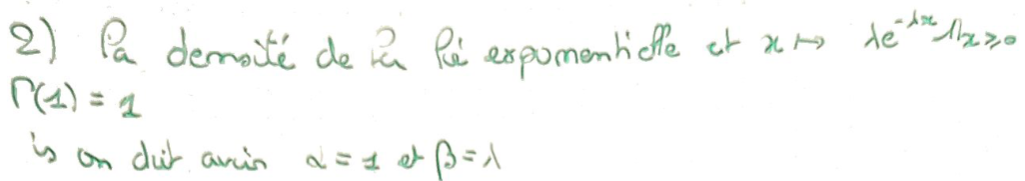 2) la densité de la loi exponentielle est x ↦ λe^{-λx} 𝟙_{x≥0}
Γ(1) = 1
↳ on doit avoir α = 1 et β = λ